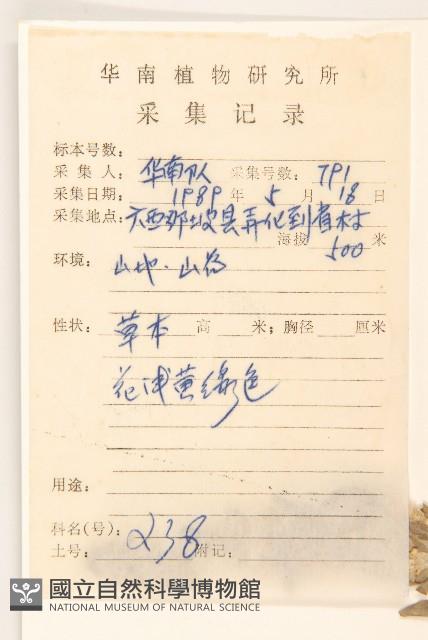 华南植物研究所
采集记录
标本号数：
采集人：华南队 采集号数：791
采集日期：1989年5月18日
采集地点：广西那坡县弄化到省村
海拔 500 米
环境：山地·山谷
性状：草本 高 米；胸径 厘米
花浅黄绿色
用途：
科名(号)：238
土号： 附记：
國立自然科學博物館
NATIONAL MUSEUM OF NATURAL SCIENCE